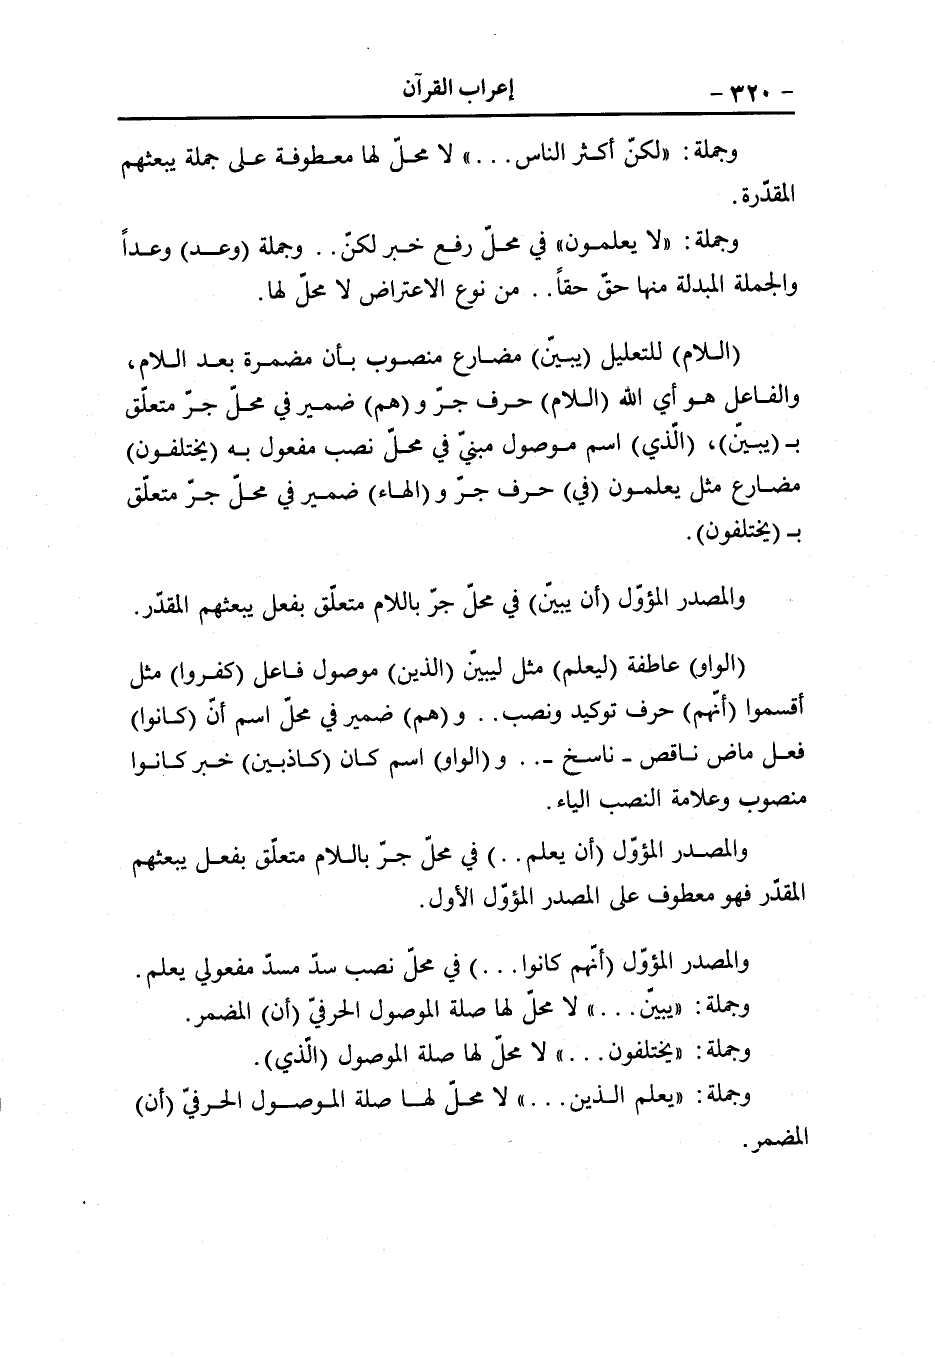 - ٣٢٠ - إعراب القرآن
وجملة: «لكنّ أكثر الناس...» لا محلّ لها معطوفة على جملة يبعثهم
المقدّرة.
وجملة: «لا يعلمون» في محلّ رفع خبر لكنّ.. وجملة (وعد) وعداً
والجملة المبدلة منها حقّ حقاً.. من نوع الاعتراض لا محلّ لها.
(اللام) للتعليل (يبيّن) مضارع منصوب بأن مضمرة بعد اللام،
والفاعل هو أي الله (اللام) حرف جرّ و (هم) ضمير في محلّ جرّ متعلّق
بـ (يبيّن)، (الّذي) اسم موصول مبنيّ في محلّ نصب مفعول به (يختلفون)
مضارع مثل يعلمون (في) حرف جرّ و (الهاء) ضمير في محلّ جرّ متعلّق
بـ (يختلفون).
والمصدر المؤوّل (أن يبيّن) في محلّ جرّ باللام متعلّق بفعل يبعثهم المقدّر.
(الواو) عاطفة (ليعلم) مثل ليبيّن (الذين) موصول فاعل (كفروا) مثل
أقسموا (أنّهم) حرف توكيد ونصب.. و (هم) ضمير في محلّ اسم أنّ (كانوا)
فعل ماض ناقص - ناسخ -.. و (الواو) اسم كان (كاذبين) خبر كانوا
منصوب وعلامة النصب الياء.
والمصدر المؤوّل (أن يعلم..) في محلّ جرّ باللام متعلّق بفعل يبعثهم
المقدّر فهو معطوف على المصدر المؤوّل الأول.
والمصدر المؤوّل (أنّهم كانوا...) في محلّ نصب سدّ مسدّ مفعولي يعلم.
وجملة: «يبيّن...» لا محلّ لها صلة الموصول الحرفيّ (أن) المضمر.
وجملة: «يختلفون...» لا محلّ لها صلة الموصول (الّذي).
وجملة: «يعلم الذين...» لا محلّ لها صلة الموصول الحرفيّ (أن)
المضمر.